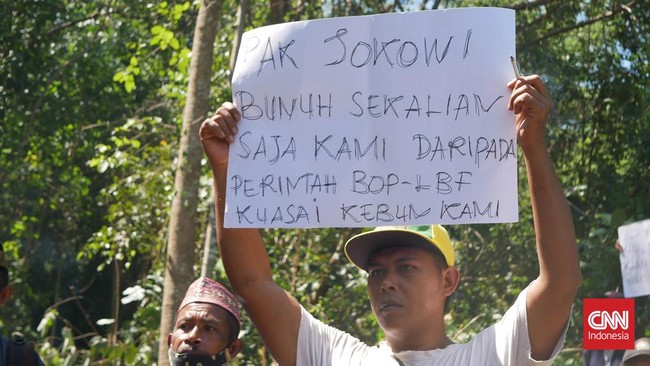 PAK JOKOWI
BUNUH SEKALIAN
SAJA KAMI DARIPADA
PERINTAH BOP-LBF
KUASAI KEBUN KAMI
CNN
Indonesia